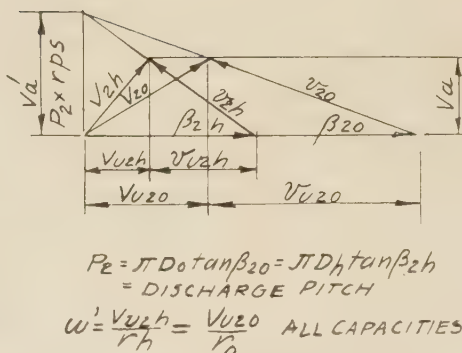 Va'
P2 x rps
V2h
V20
v2h
v20
Va
β2h
β20
Vu2h
vu2h
Vu20
vu20
P2 = πDo tanβ20 = πDh tanβ2h
= DISCHARGE PITCH
ω' = Vu2h/rh = Vu20/ro ALL CAPACITIES